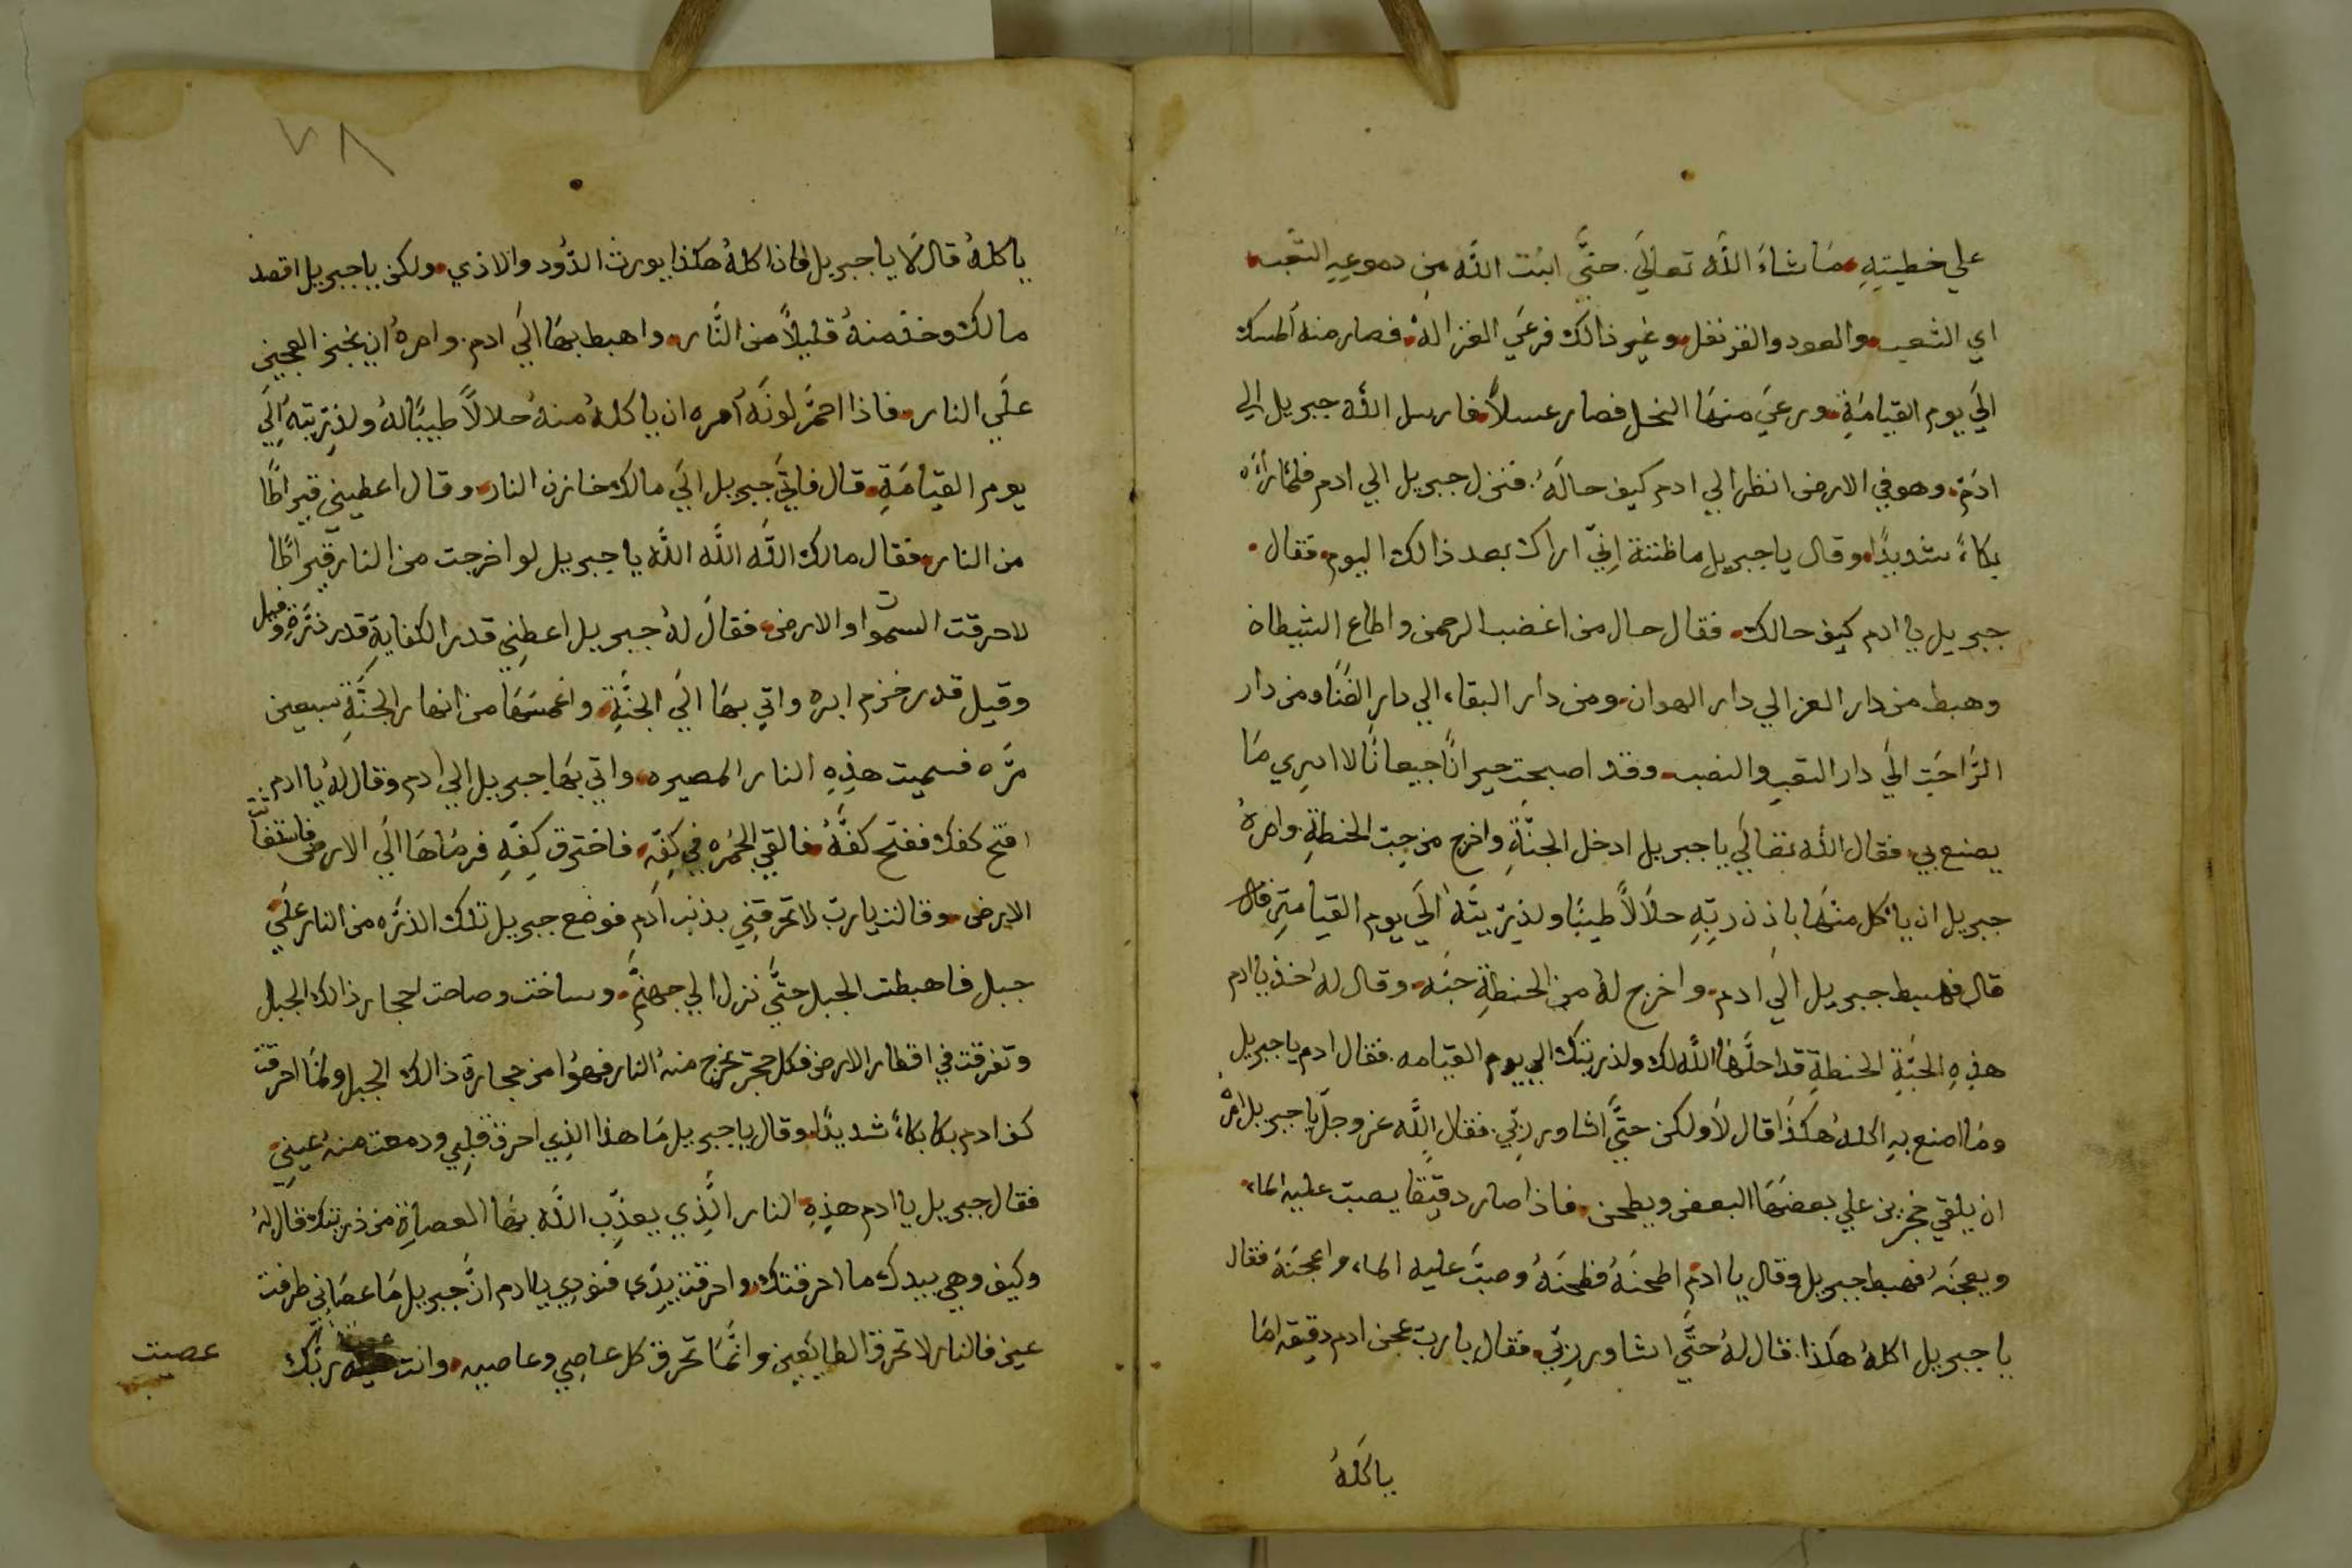 علي خطيتِهِ مَا شاءَ اللَّه تعالَي. حتَّي انبت اللَّه مِن دموعِهِ التَّعب
اي الشعب والعود والقرنفل وغير ذالك فرعَي الغزاله. فصار منه المسك
الَي يوم القيامَةِ ورعيَ منهَا النحل فصار عسلاً فارسل اللَّه جبريل الي
ادَم. وهو في الارض انظر الي ادم كيف حالَهُ. فنزل جبريل الي ادم فلمَّا رأَه
بكاءً شديدًا وقال يا جبريل ما ظننة اِنّي اراك بعد ذالك اليوم فقال.
جبريل يا ادم كيف حالك. فقال حال من اغضب الرحمن واطاع الشيطان
وهبط من دار العز الي دار الهوان ومن دار البقاء الي دار الفَنَا ومن دار
الرَّاحَتِ الَي دار التعبِ والنصب وقد اصبحت حيرانًا جيعانًا لا ادرِي مَا
يصنع بي فقال اللَّه تعالَي يا جبريل ادخل الجنَّةِ واخرج من جبت الحنطةِ وامرهُ
جبريل ان ياكل منهَا باذن ربّهِ حلالاً طيبًا ولذرّيتَه الَي يوم القيامتِ قال
قال فهبط جبريل الَي ادم. واخرج لهُ من الحنطةِ حبَّه وقال لهُ خذ يا ادم
هذِهِ الحبَّةِ الحنطةِ قد احلَّهَا اللَّه لك ولذريتك الي يوم القيامه. فقال ادم يا جبريل
ومَا اصنع بهِ اكلهُ هَكَذَا قال لَا ولكن حتَّي اشاور ربّي. فقال اللَّه عز وجلّ يا جبريل امرهُ
ان يلقي حجرين علي بعضهَا البعض ويطحن. فاذا صار دقيقًا يصبّ عليه الماء
ويعجنَه فهبط جبريل وقال يا ادم اطحنَهُ فطحنَهُ وصبَّ عليه الماء واعجنَهَ فقال
يا جبريل اكلهُ هكذا. قال لهُ حتَّي اشاور ربّي. فقال يا ربّ عجن ادم دقيقه امَا
ياكلَهُ
٧٨
ياكلهُ قال لَا يا جبريل فاذا كلهُ هكذا يورث الدَّود والاذي. ولكن يا جبريل اقصد
مالك وخذ منهُ قليلاً من النَّار. واهبط بهَا الَي ادم. وامرهُ ان يخبز العجين
علَي النار. فاذا احمَّر لونَه أمره ان ياكلهُ منهُ حلالاً طيبًا لهُ ولذرّيتهِ اِلَي
يوم القيامَةِ. قال فاتَي جبريل الَي مالك خازن النار. وقال اعطيني قيراطًا
من النار. فقال مالك اللَّه اللَّه اللَّه يا جبريل لو اخرجت من النار قيراطًا
لاحرقت السموات والارض. فقالَ لهُ جبريل اعطِني قدر الكفايةِ قدر ذرَّةِ وقيل
وقيل قدر خزم ابره واتي بهَا الَي الجنَّةِ. واغمسَهَا من انهار الجنَّةِ سبعين
مرَّه فسميت هذِهِ النار المصيره. واتي بهَا جبريل الي ادم وقال لهُ يا ادم
افتح كفك ففتح كفَّهُ فالقي الجمُره في كفِّه. فاحترق كِفّهِ فرمَاهَا الَي الارض فاستغاثت
الارض. وقالت يا ربّ لا تحرقنِي بذنب ادَم فوضع جبريل تلك الذرَّه من النار علَي
جبل فاهبطت الجبل حتَّي نزل الي جهنَّم. وساخت وصاحت احجار ذالك الجبل
وتفرقت في اقطار الارض فكل حجر يخرج منهُ النار فهوُا من حجارة ذالك الجبل ولمَّا احرقت
كف ادم بكا بكاءً شديدًا وقال يا جبريل مَا هذا الذِي احرق قلبِي ودمعت منهُ عيني
فقال جبريل يا ادم هذِهِ النار الَّذِي يعذِّب اللَّه بهَا العصاةِ من ذريتك قال لهُ
وكيف وهي بيدك ما احرقتك. واحرقت يدِي فنودِي يا ادم انَّ جبريل مَا عصَاني طرفت
عين فالنار لا تحرق الطايعِين وانَّمَا تحرق كل عاصِي وعاصيه. وانت عصيت ربَّك
عصيت